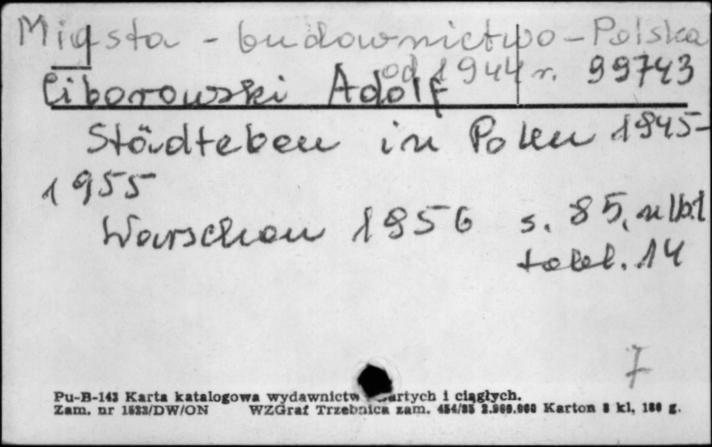 Miasta - budownictwo - Polska
od 1944 r. 99743
Ciborowski Adolf
Städtebau in Polen 1945-
1955
Warschau 1956 s. 85, nlb.1
tabl. 14
7
Pu-B-143 Karta katalogowa wydawnictw zwartych i ciągłych.
Zam. nr 1523/DW/ON WZGraf Trzebnica zam. 454/85 2.000.000 Karton 3 kl. 180 g.